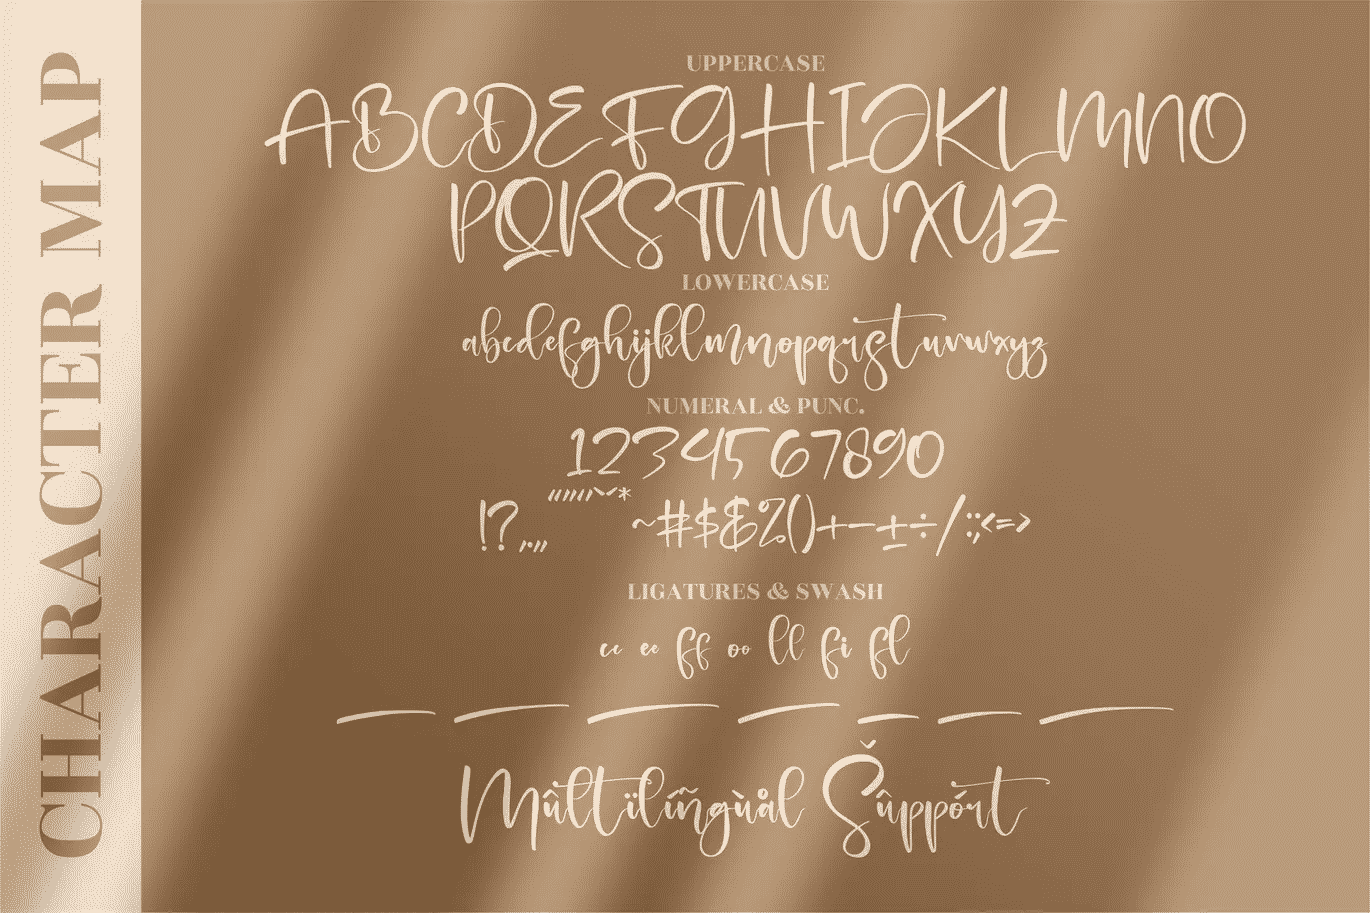 CHARACTER MAP
UPPERCASE
ABCDEFGHIJKLMNO
PQRSTUVWXYZ
LOWERCASE
abcdefghijklmnopqrstuvwxyz
NUMERAL & PUNC.
1234567890
!?,.,, """ˇ* ~#$&%()+−±÷/:;<=>
LIGATURES & SWASH
cc ee ff oo ll fi fl
Mûltïlíñgùål Šûppórt